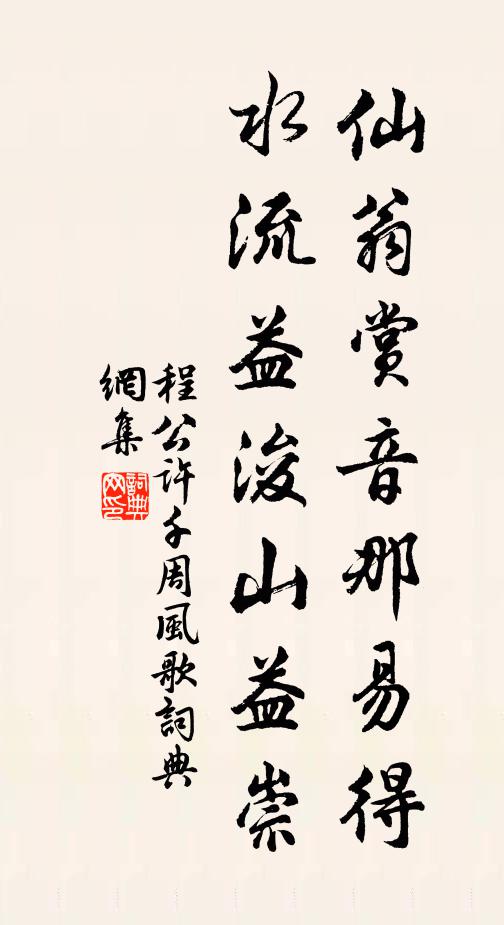 仙翁賞音那易得
水流益浚山益崇
程公許千周風歌詞典
網集
詞典網印